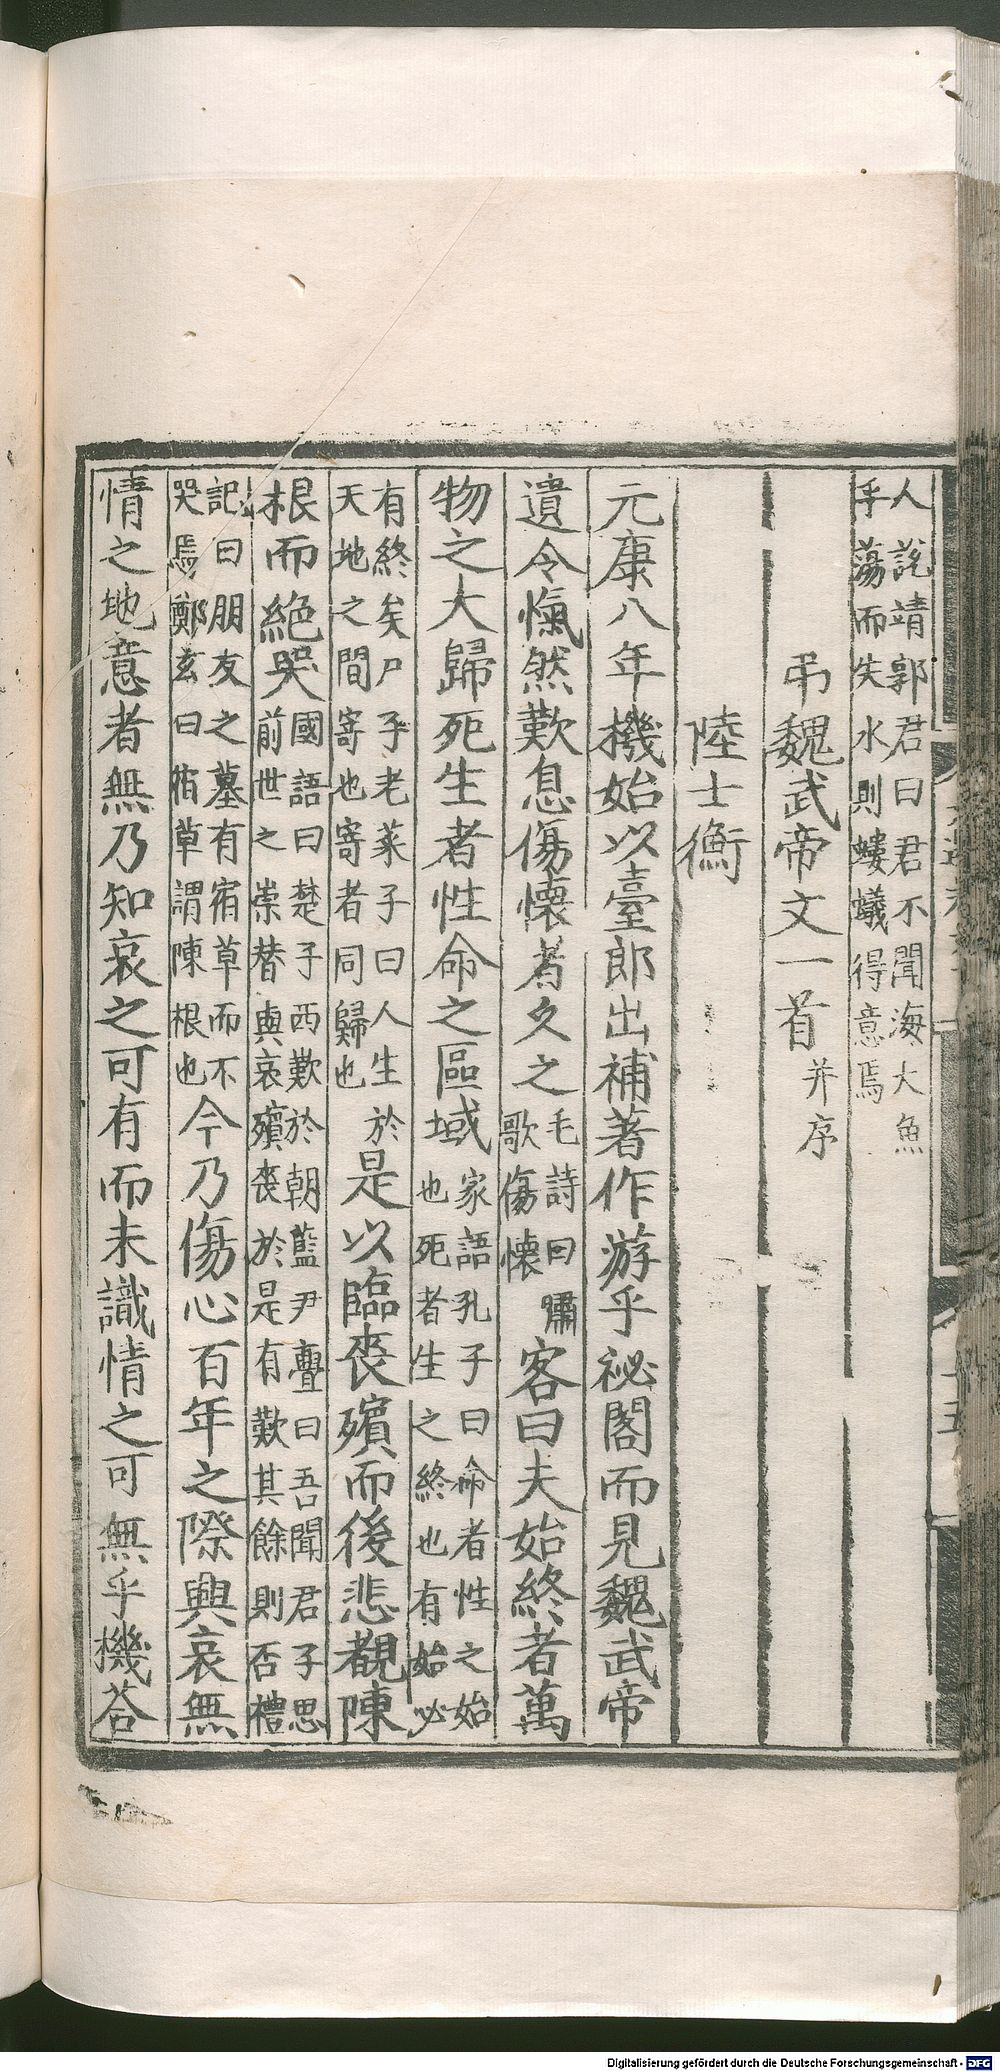 人說靖郭君曰君不聞海大魚
乎蕩而失水則螻蟻得意焉
弔魏武帝文一首 并序
陸士衡
元康八年機始以臺郎出補著作游乎祕閣而見魏武帝
遺令愾然歎息傷懷者久之 毛詩曰嘯歌傷懷 客曰夫始終者萬
物之大歸死生者性命之區域 家語孔子曰命者性之始也死者生之終也有始必
有終矣尸子老萊子曰人生於天地之間寄也寄者同歸也 是以臨喪殯而後悲覩陳
根而絶哭 國語曰楚子西歎於朝藍尹亹曰吾聞君子思前世之崇替與哀殯喪於是有歎其餘則否禮
記曰朋友之墓有宿草而不哭焉鄭玄曰宿草謂陳根也 今乃傷心百年之際興哀無
情之地意者無乃知哀之可有而未識情之可無乎機荅
Digitalisierung gefördert durch die Deutsche Forschungsgemeinschaft - DFG